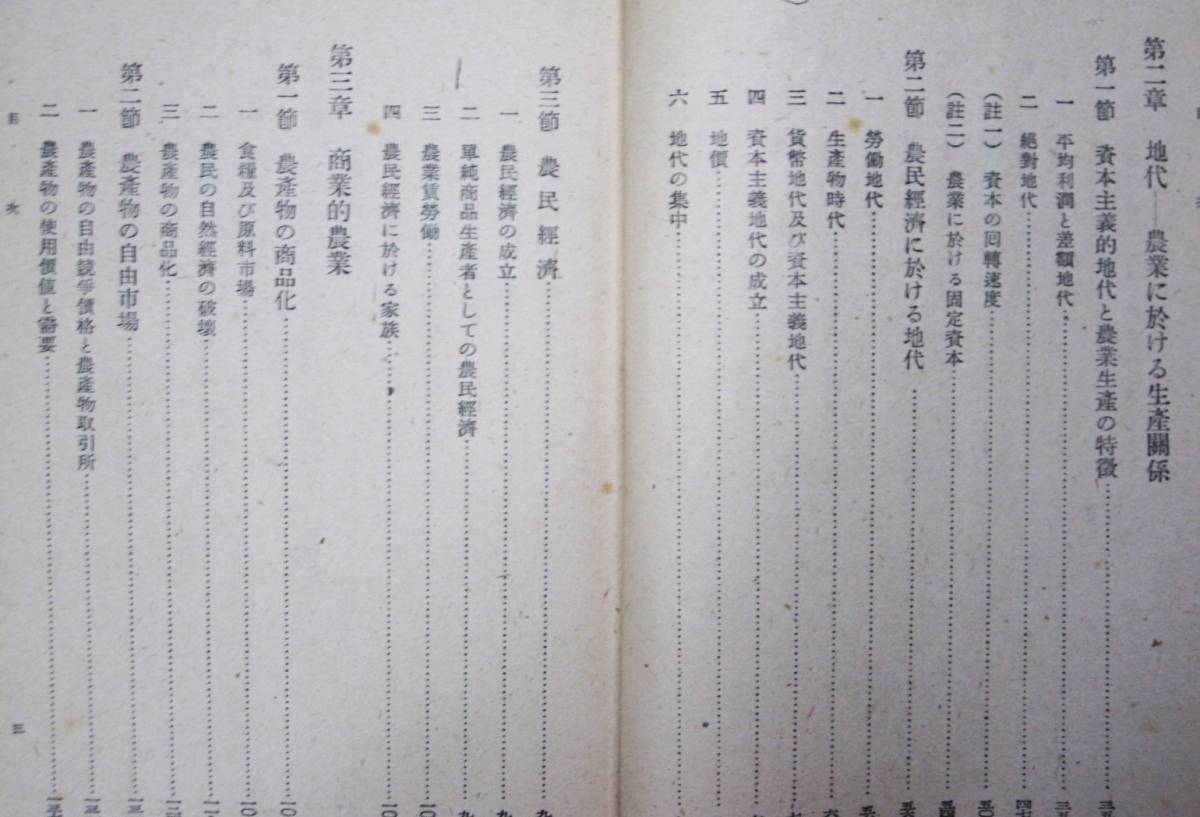 第二章 地代——農業に於ける生產關係
第一節 資本主義的地代と農業生產の特徵
一 平均利潤と差額地代
二 絕對地代
(註一) 資本の回轉速度
(註二) 農業に於ける固定資本
第二節 農民經濟に於ける地代
一 勞働地代
二 生產物時代
三 貨幣地代及び資本主義地代
四 資本主義地代の成立
五 地價
六 地代の集中
第三節 農民經濟
一 農民經濟の成立
二 單純商品生產者としての農民經濟
三 農業賃勞働
四 農民經濟に於ける家族
第三章 商業的農業
第一節 農產物の商品化
一 食糧及び原料市場
二 農民の自然經濟の破壞
三 農產物の商品化
第二節 農產物の自由市場
一 農產物の自由競爭價格と農產物取引所
二 農產物の使用價値と需要
目次
三